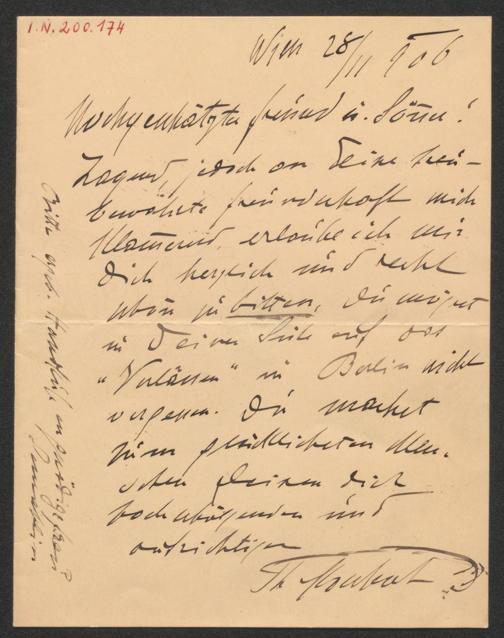 I.N. 200.174
Wien 28/11 906
Hochgeschätzter Freund u. Gönner!
Zagend, jedoch an Deine treu-
bewährte Freundschaft mich
klammernd, erlaube ich mir
Dich herzlich und recht
schön zu bitten, Du mögest
in Deiner Güte auf das
"Vorlässen" in Berlin nicht
vergessen. Du machst
zum glücklichsten Men-
schen Deinen Dich
hochschätzenden und
aufrichtigen
Th.
Bitte erg. Handkuß an gnäd. Frau
Gemahlin